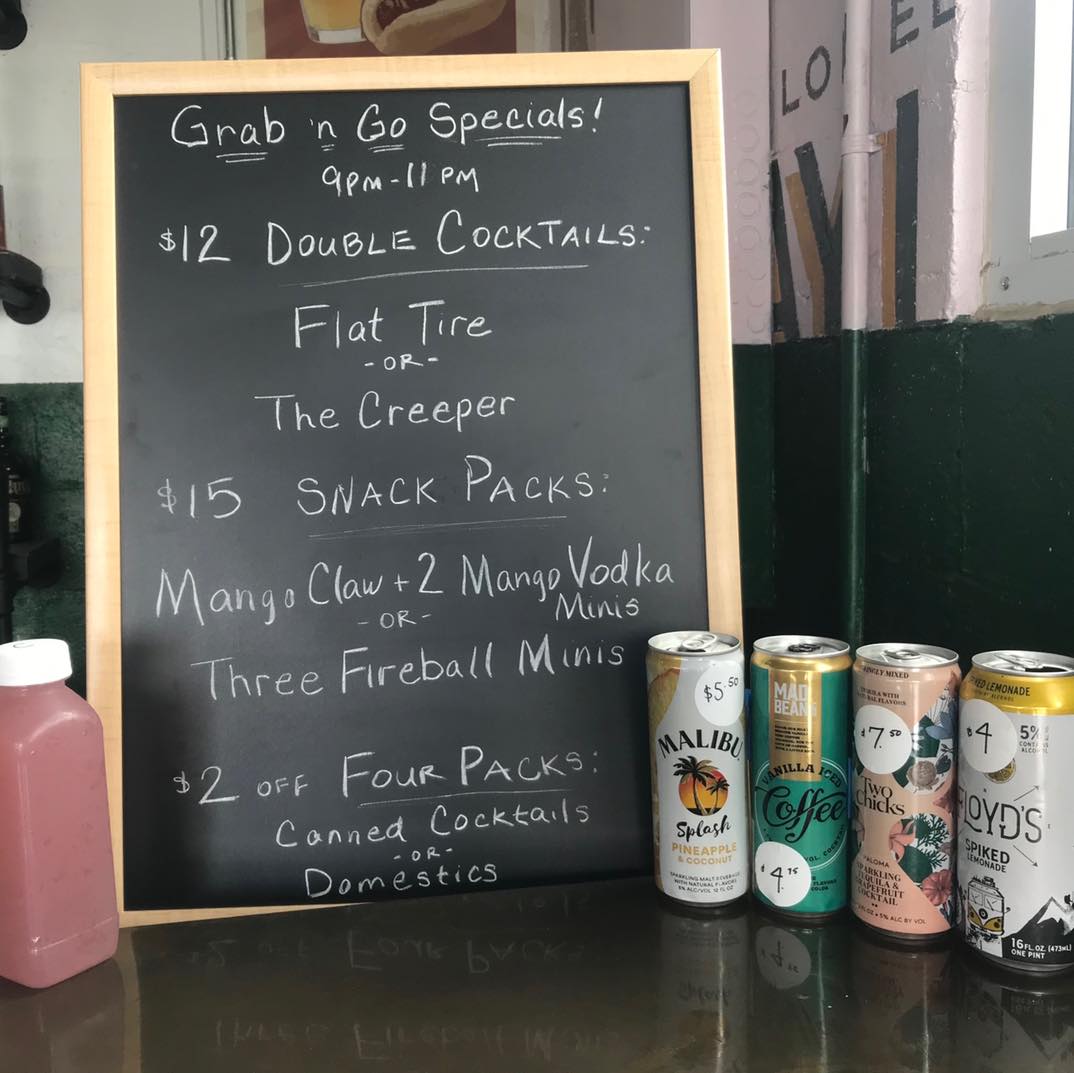 Grab 'n Go Specials!
9PM-11 PM
$12 DOUBLE COCKTAILS:
Flat Tire
-OR-
The Creeper
$15 SNACK PACKS:
Mango Claw + 2 Mango Vodka
Minis
-OR-
Three Fireball Minis
$2 OFF FOUR PACKS:
Canned Cocktails
-OR-
Domestics
LO
EL
$5.50
MALIBU
Splash
PINEAPPLE
& COCONUT
SPARKLING MALT BEVERAGE
WITH NATURAL FLAVORS
MAD
BEAN
VANILLA ICED
Coffee
$4.75
$7.50
TWO
Chicks
PALOMA
SPARKLING
TEQUILA &
GRAPEFRUIT
COCKTAIL
5% ALC BY VOL
LEMONADE
$4
5%
LOYD'S
SPIKED
LEMONADE
16 FL. OZ. (473mL)
ONE PINT